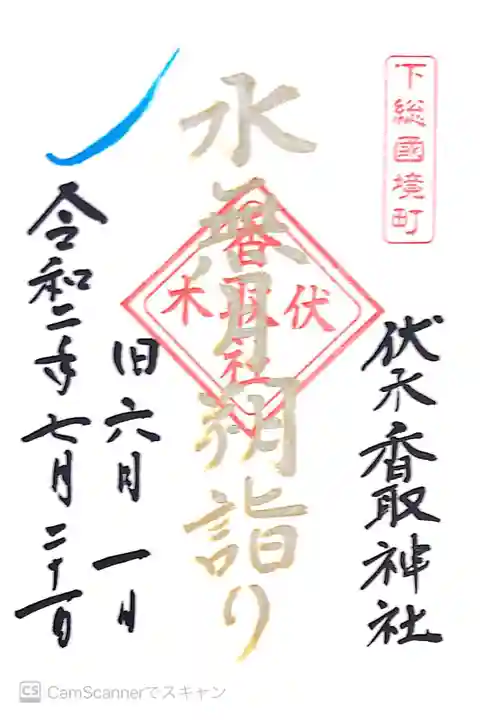 下総國境町
伏木香取神社
水無月朔詣り
伏木
香取社
旧六月一日
令和二年七月二十一日
CS CamScannerでスキャン